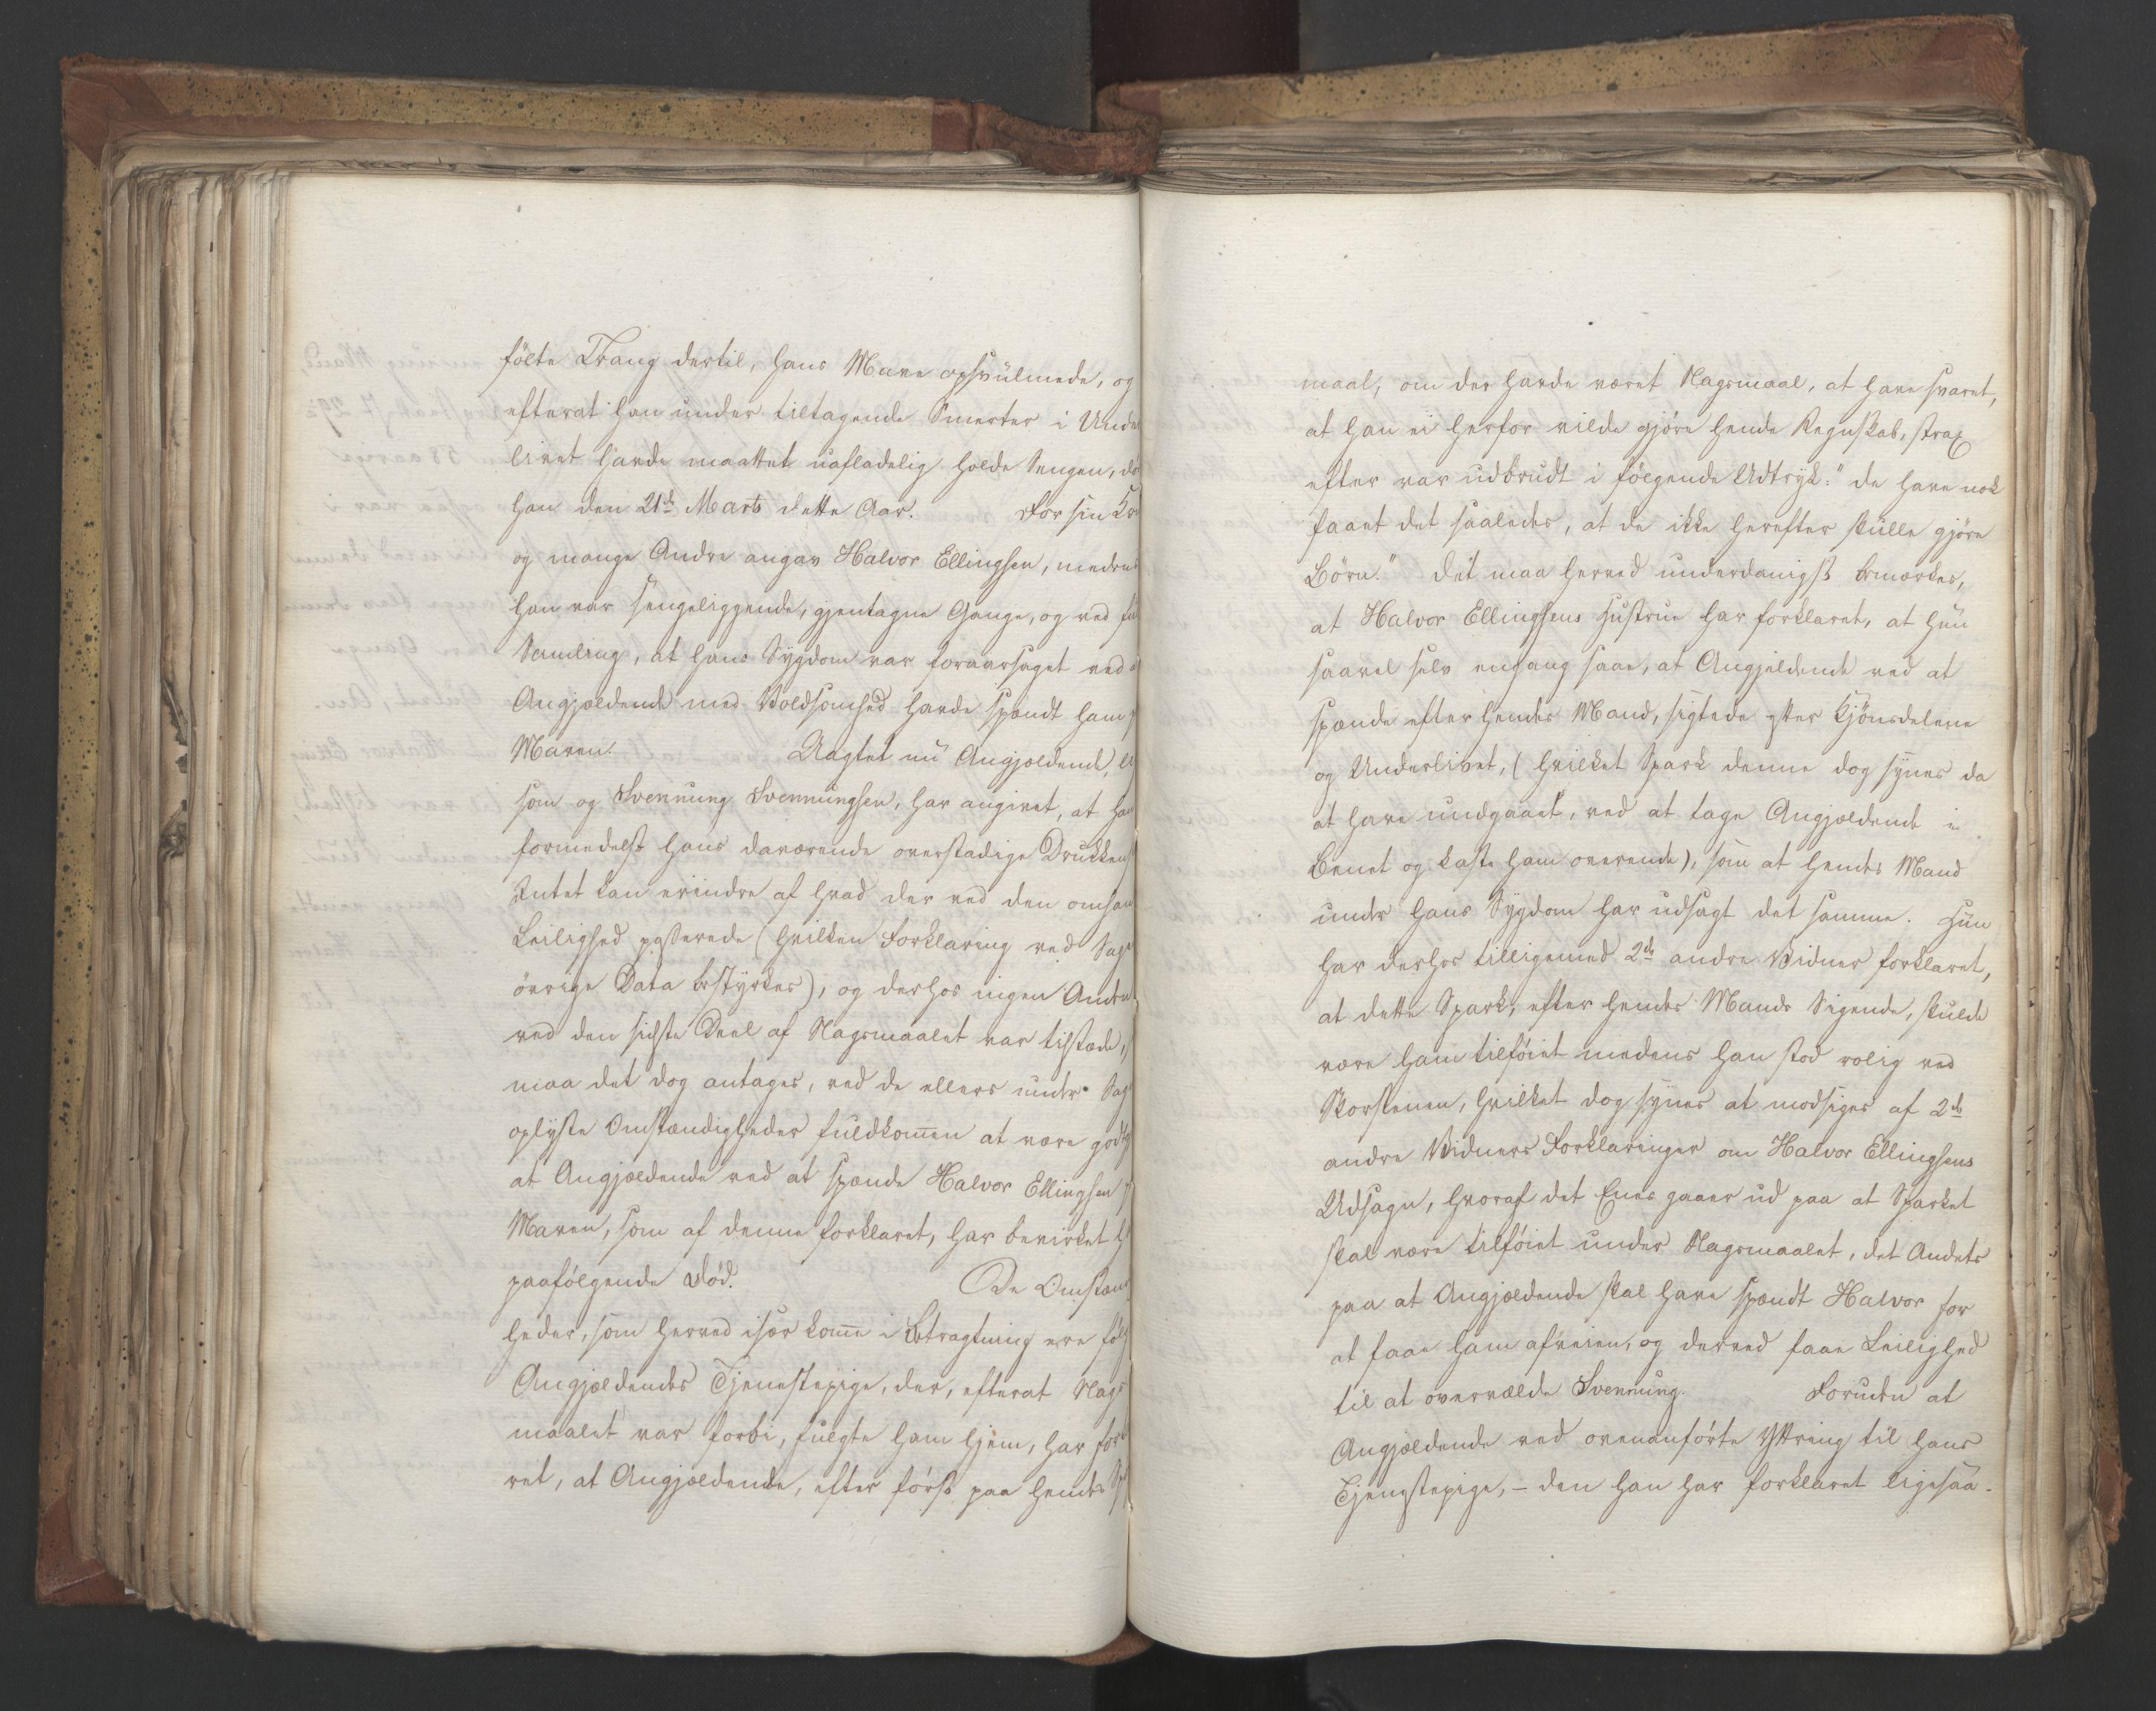 følte Trang dertil, hans Mave opsvulmede, og
efterat han under tiltagende Smerter i Under
livet havde maattet uafladelig holde Sengen, dø
han den 21de Marts dette Aar. For sin Ko
og mange Andre angav Halvor Ellingsen, medens
han var sengeliggende, gjentagne Gange, og ved fu
Samling, at hans Sygdom var foraarsaget ved a
Angjældende med Voldsomhed havde spændt ham
Maven. Uagtet nu Angjældende, li
som og Svennung Svennungsen, har angivet, at ha
formedelst hans daværende overstadige Drukkens
Intet kan erindre af hvad der ved den omhan
Leilighed passerede (hvilken Forklaring ved Sage
øvrige Data bestyrkes), og derhos ingen Andre
ved den sidste Deel af Slagsmaalet var tilstæde,
maa det dog antages, ved de ellers under Sag
oplyste Omstændigheder fuldkommen at være godtg
at Angjældende ved at spænde Halvor Ellingsen
Maven, som af denne forklaret, har bevirket h
paafølgende Død. De Omstæn
heder, som herved især komme i Betragtning ere føl
Angjældendes Tjenestepige, der, efterat Slags
maalet var forbi, fulgte ham hjem, har fork
ret, at Angjældende, efter først paa hendes Sp
maal, om der havde været Slagsmaal, at have svaret,
at han ei herfor vilde gjøre hende Regnskab, strax
efter var udbrudt i følgende Udtryk: "de have nok
faaet det saaledes, at de ikke herefter skulle gjøre
Børn." Det maa herved underdanigst bemærkes,
at Halvor Ellingsens Hustrue har forklaret, at hun
saavel selv engang saae, at Angjældende ved at
spænde efter hendes Mand, sigtede efter Kjønsdelene
og Underlivet, (hvilket Spark denne dog synes da
at have undgaaet, ved at tage Angjældende i
Benet og kaste ham overende), som at hendes Mand
under hans Sygdom har udsagt det samme. Hun
har derhos tilligemed 2de andre Vidner forklaret,
at dette Spark, efter hendes Mands Sigende, skulde
være ham tilføiet medens han stod rolig ved
Skorstenen, hvilket dog synes at modsiges af 2de
andre Vidners Forklaringer om Halvor Ellingsens
Udsagn, hvoraf det Enes gaaer ud paa at Sparket
skal være tilføiet under Slagsmaalet, det Andets
paa at Angjældende skal have spændt Halvor for
at faae ham afveien, og derved faae Leilighed
til at overvælde Svennung. Foruden at
Angjældende ved ovenanførte Yttring til hans
Tjenestepige, - den han har forklaret ligesaa-